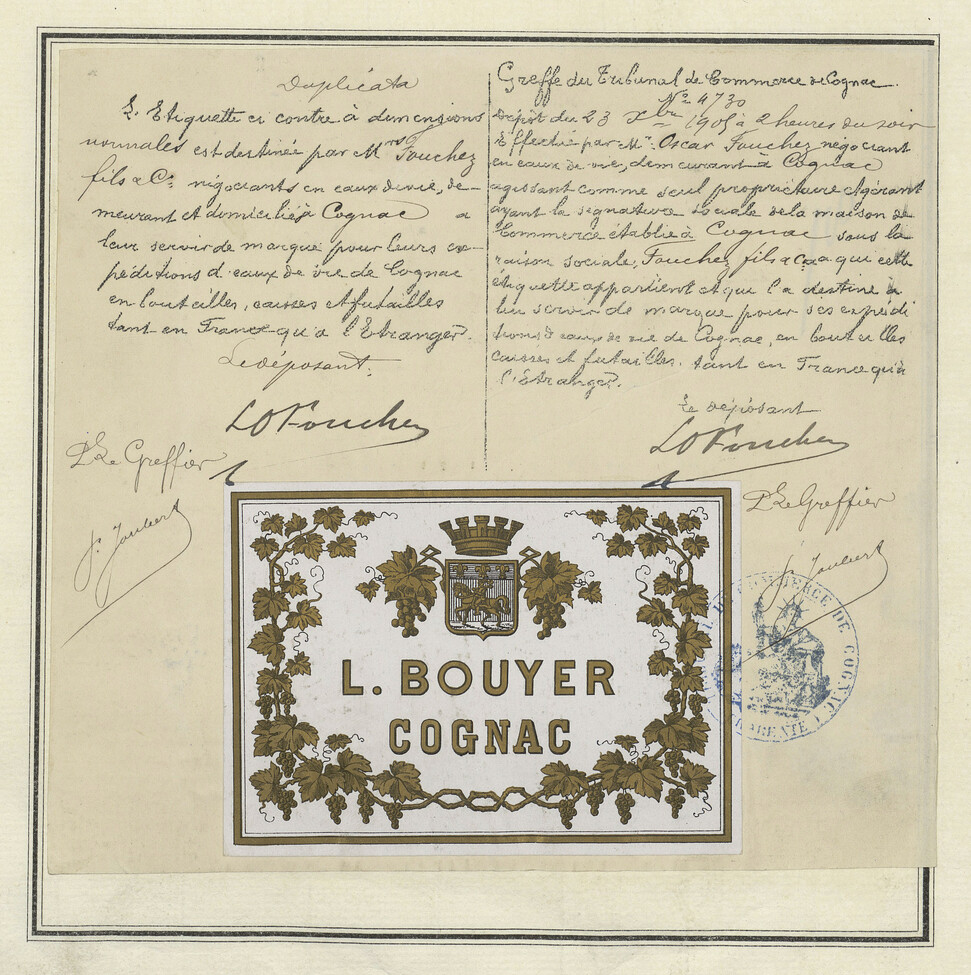 Duplicata
L'Etiquette ci contre à dimensions
normales est destinée par Mrs Fouchez
fils & Cie négociants en eaux de vie, de-
meurant et domiciliés à Cognac a
leur servir de marque pour leurs ex-
péditions d'eaux de vie de Cognac
en bouteilles, caisses et futailles
tant en France qu'à l'Etranger.
Le déposant.
LO Fouchez
Le Greffier
J. Joubert
Greffe du Tribunal de Commerce de Cognac.
No 4730
Dépôt du 23 Xbre 1905 à 2 heures du soir
Effectué par Mr Oscar Fouchez négociant
en eaux de vie, demeurant à Cognac
agissant comme seul propriétaire et gérant
ayant la signature sociale de la maison de
Commerce établie à Cognac sous la
raison sociale, Fouchez fils & Cie a qui cette
étiquette appartient et qui l'a destine à
lui servir de marque pour ses expédi
tions d'eaux de vie de Cognac, en bouteilles
caisses et futailles. tant en France qu'à
l'Etranger.
Le déposant
LO Fouchez
Le Greffier
J. Joubert
L. BOUYER
COGNAC
COMMERCE DE COGNAC
CHARENTE